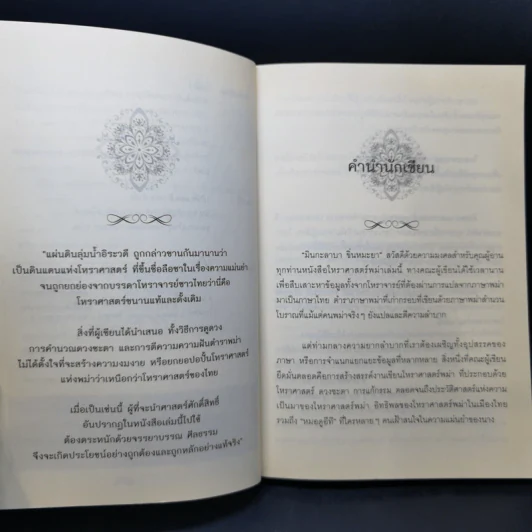 "แผ่นดินลุ่มน้ำอิระวดี ถูกกล่าวขานกันมานานว่า
เป็นดินแดนแห่งโหราศาสตร์ ที่ขึ้นชื่อลือชาในเรื่องความแม่นยำ
จนถูกยกย่องจากบรรดาโหราจารย์ชาวไทยว่านี่คือ
โหราศาสตร์ขนานแท้และดั้งเดิม
สิ่งที่ผู้เขียนได้นำเสนอ ทั้งวิธีการดูดวง
การคำนวณดวงชะตา และการตีความความฝันตำราพม่า
ไม่ได้ตั้งใจที่จะสร้างความงมงาย หรือยกยอปอปั้นโหราศาสตร์
แห่งพม่าว่าเหนือกว่าโหราศาสตร์ของไทย
เมื่อเป็นเช่นนี้ ผู้ที่จะนำศาสตร์ศักดิ์สิทธิ์
อันปรากฏในหนังสือเล่มนี้ไปใช้
ต้องตระหนักด้วยจรรยาบรรณ ศีลธรรม
จึงจะเกิดประโยชน์อย่างถูกต้องและถูกหลักอย่างแท้จริง"
คำนำนักเขียน
"มินกะลาบา ขิ่นหมะยา" สวัสดีด้วยความมงคลสำหรับคุณผู้อ่าน
ทุกท่านหนังสือโหราศาสตร์พม่าเล่มนี้ ทางคณะผู้เขียนได้ใช้เวลานาน
เพื่อสืบเสาะหาข้อมูลทั้งจากโหราจารย์ที่ต้องผ่านการแปลจากภาษาพม่า
มาเป็นภาษาไทย ตำราภาษาพม่าที่เก่ากรอบที่เขียนด้วยภาษาพม่าสำนวน
โบราณที่แม้แต่คนพม่าจริงๆ ยังแปลและตีความลำบาก
แต่ท่ามกลางความยากลำบากที่เราต้องเผชิญทั้งอุปสรรคของ
ภาษา หรือการจำแนกแยกแยะข้อมูลที่หลากหลาย สิ่งหนึ่งที่คณะผู้เขียน
ยึดมั่นตลอดคือการสร้างสรรค์งานเขียนโหราศาสตร์พม่า ที่ประกอบด้วย
โหราศาสตร์ ดวงชะตา การแก้กรรม ตลอดจนถึงประวัติศาสตร์แห่งความ
เป็นมาของโหราศาสตร์พม่า อิทธิพลของโหราศาสตร์พม่าในเมืองไทย
รวมถึง "หมอดูอีที" ที่ใครหลายๆ คนเฝ้าสนใจในความแม่นยำของนาง